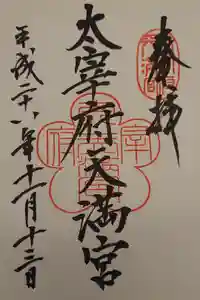 奉拝
太宰府天満宮
平成二十八年十一月十三日